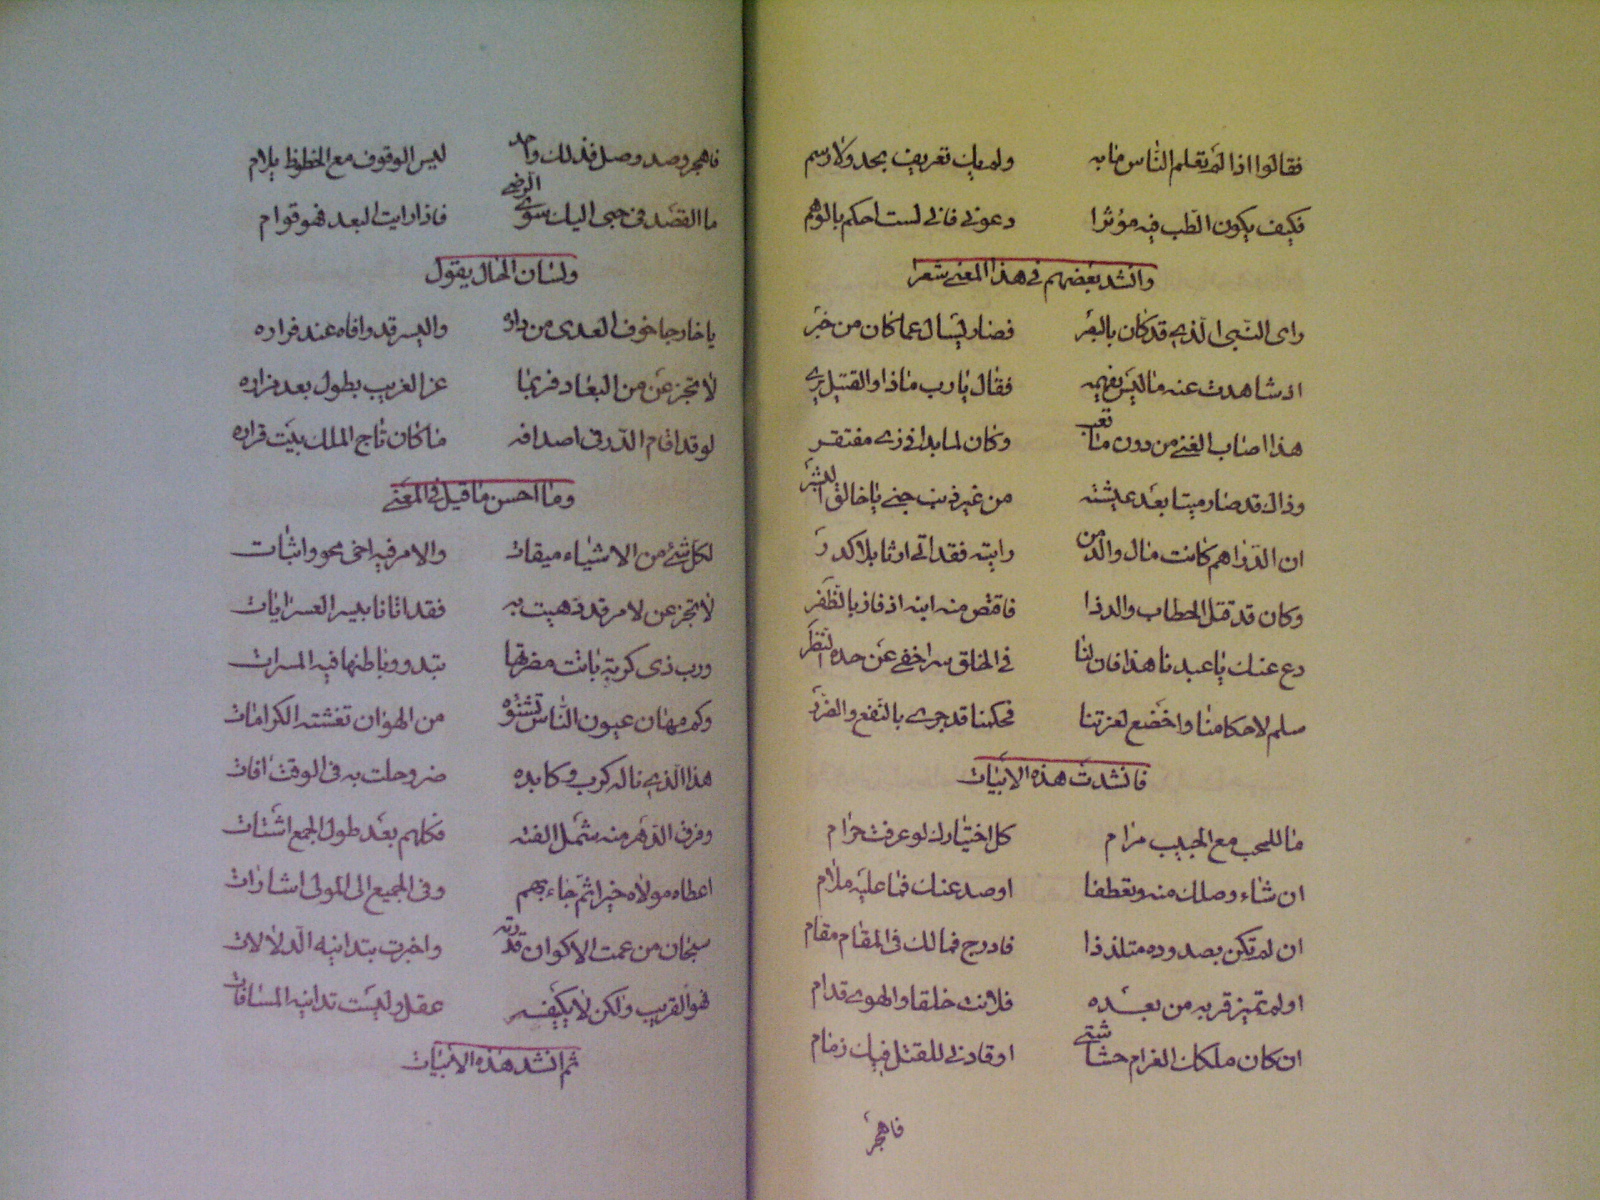 فقالوا اذا لم تعلم الناس ما به ولم يك تعريف بحد ولا رسم
فكيف يكون الطب فيه مؤثرا دعوني فاني لست احكم بالوهم
وانشد بعضهم في هذا المعنى شعرا
راى النبي الذي قد كان بالبقر فصار يسال عما كان من خبر
اذ شاهدت عنه ما ليس يفهمه فقال يا رب ماذا والقتيل بري
هذا اصاب الغنى من دون ما تعب وكان لما بدا في زي مفتقر
وذاك قد صار ميتا بعد عيشته من غير ذنب جنى يا خالق البشر
ان الدراهم كانت مال والد من رايته فقد اتى اوثا بلا كدر
وكان قد قتل الحطاب والد ذا فاقتص منه ابنه اذ فاز بالظفر
دع عنك يا عبدنا هذا فان لنا في الخلق سرا خفى عن حده النظر
سلم لاحكامنا واخضع لعزتنا فحكمنا قد جرى بالنفع والضرر
فانشدت هذه الابيات
ما للمحب مع الحبيب مرام كل اختيارك لو عرفت حرام
ان شاء وصلك منه وتعطفا او صد عنك فما عليه ملام
ان لم تكن بصدوده متلذذا فادرج فما لك في المقام مقام
او لم تميز قربه من بعده فلانت خلقا والهوى قدام
ان كان ملكك الغرام حشاشتي او قادني للقتل فيك زمام
فاهجر
فاهجر وصد وصل فذلك واحد ليس الوقوف مع الحظوظ يلام
ما القصد في حبي اليك سوى الرضى فاذا رايت البعد فهو قوام
ولسان الحال يقول
يا خارجا خوف العدى من داره واليسر قد وافاه عند فراره
لا تجزعن من البعاد فربما عز الغريب بطول بعد مزاره
لو قد اقام الدر في اصدافه ما كان تاج الملك بيت قراره
وما احسن ما قيل في المعنى
لكل شئ من الاشياء ميقات والامر فيه اخى محو واثبات
لا تجزعن لامر قد ذهبت به فقد اتانا بيسر العسر ايات
ورب ذى كربة بانت مضرتها تبدو وباطنها فيه المسرات
وكم مهان عيون الناس تشنؤه من الهوان تغشته الكرامات
هذا الذي ناله كرب وكابده ضر وحلت به في الوقت افات
وفرق الدهر منه شمل الفته فكلهم بعد طول الجمع اشتات
اعطاه مولاه خيرا ثم جاء بهم وفي الجميع الى المولى اشارات
سبحان من عمت الاكوان قدرته واخبرت بتدانيه الدلالات
فهو القريب ولكن لا يكيفه عقل وليست تدانيه المسافات
ثم انشد هذه الابيات